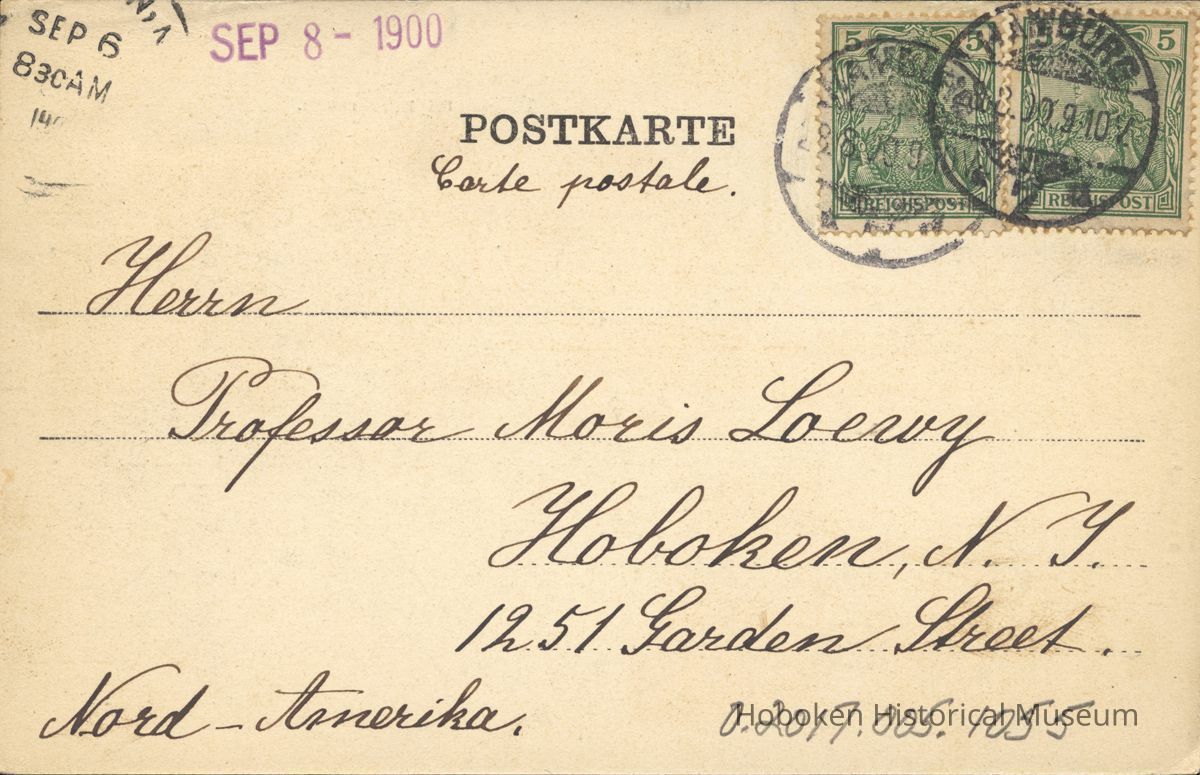 SEP 6
830AM
SEP 8 - 1900
5 5 5
HAMBURG
REICHSPOST REICHSPOST
POSTKARTE
Carte postale.
Herrn
Professor Moris Loewy
Hoboken, N. J.
1251 Garden Street.
Nord-Amerika.
0.2017.005.1055
Hoboken Historical Museum